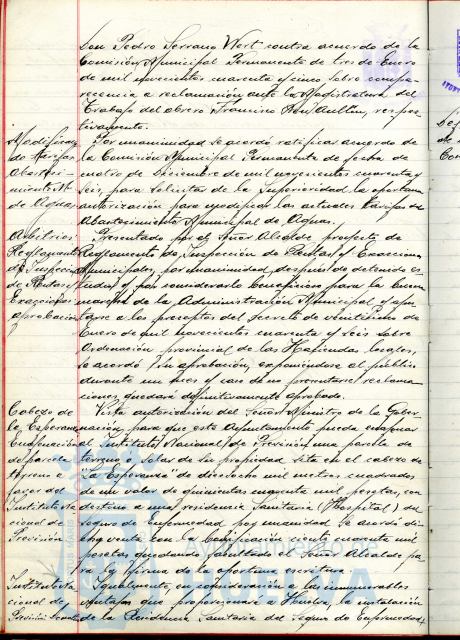 Don Pedro Serrano Wert contra acuerdo de la
Comisión Municipal Permanente de tres de Enero
de mil novecientos cuarenta y cinco sobre compa-
recencia a reclamación ante la Magistratura del
Trabajo del obrero Francisco, respec-
tivamente.
Modificación
de tarifas
Abasteci-
miento M.
de Aguas
Por unanimidad se acordó ratificar acuerdo de
la Comisión Municipal Permanente de fecha de
cuatro de Diciembre de mil novecientos cuarenta y
seis, para solicitar de la Superioridad la oportuna
autorización para modificar las actuales Tarifas de
Abastecimiento Municipal de Aguas.
Arbitrios
Reglamento
de Inspección
de Rentas y
Exacciones
aprobación
Presentado por el Señor Alcalde proyecto de
Reglamento de Inspección de Rentas y Exacciones
Municipales, por unanimidad, después de detenido es-
tudio y por considerarlo beneficioso para la buena
marcha de la Administración Municipal y ajus-
tarse a los preceptos del Decreto de veinticinco de
Enero de mil novecientos cuarenta y seis sobre
Ordenación provincial de las Haciendas locales,
se acordó su aprobación, exponiéndose al público
durante un mes y caso de no presentarse reclama-
ciones quedará definitivamente aprobado.
Cabezo de
la Esperanza
Enajenación
de parcela
terreno a
favor del
Instituto Na-
cional de
Previsión
Vista autorización del Señor Ministro de la Gober-
nación, para que este Ayuntamiento pueda enajenar
al Instituto Nacional de Previsión una parcela de
terreno o solar de su propiedad sita en el cabezo de
"La Esperanza" de dieciocho mil metros cuadrados
de un valor de quinientas cuarenta mil pesetas, con
destino a una residencia Sanitaria (Hospital) del
seguro de enfermedad por unanimidad se acordó di-
cha venta con la bonificación ciento cuarenta mil
pesetas quedando facultado el Señor Alcalde pa-
ra la firma de la oportuna escritura.
Instituto Na-
cional de
Previsión
Igualmente, en consideración a las innumerables
ventajas que proporcionará a Huelva, la instalación
de la Residencia Sanitaria del Seguro de Enfermedad,
Ayuntamiento de
HUELVA